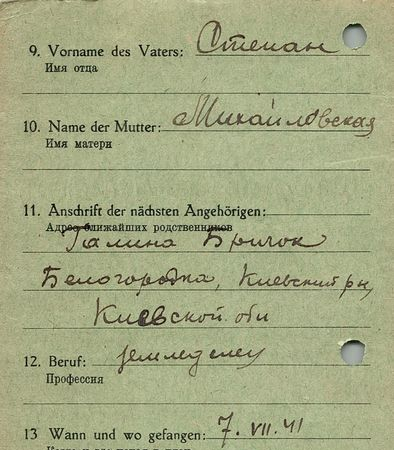 9. Vorname des Vaters: Степан
Имя отца
10. Name der Mutter: Михайловская
Имя матери
11. Anschrift der nächsten Angehörigen:
Адрес ближайших родственников
Галина Бричок
Белогородка, Киевский р-н,
Киевской обл
12. Beruf: земледелец
Профессия
13 Wann und wo gefangen: 7. VII. 41